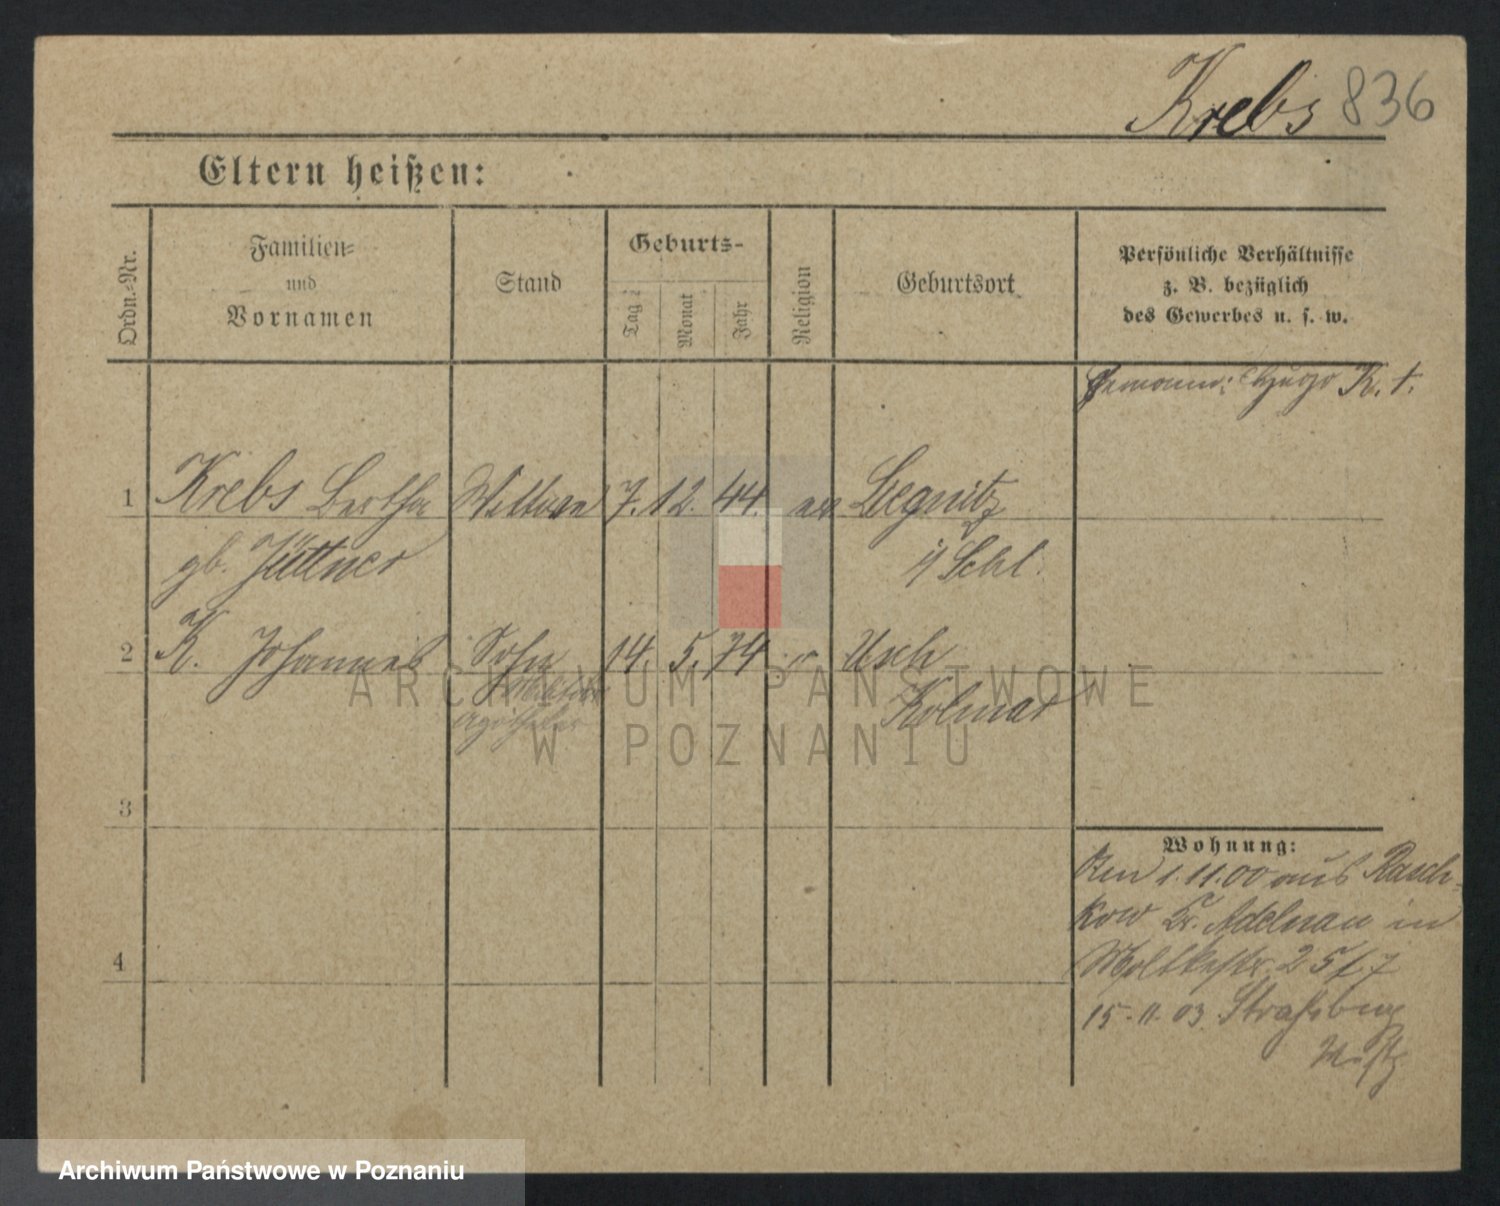 Krebs 836
Eltern heißen:
Ordn.-Nr.
Familien-
und
Vornamen
Stand
Geburts-
Tag
Monat
Jahr
Religion
Geburtsort
Persönliche Verhältnisse
z. B. bezüglich
des Gewerbes u. s. w.
Ehemann: Hugo K. †.
1 Krebs Bertha Wittwe 7. 12. 44. ev Liegnitz
gb. Jüttner i/ Schl.
2 K. Johannes Sohn 14. 5. 74 " Usch
Kolmar
apotheker
ARCHIWUM PAŃSTWOWE
W POZNANIU
3
4
Wohnung:
Den 1.11.00 aus Rasch-
kow Kr. Adelnau in
Moltkestr. 2
15.11.03 Straßburg
Archiwum Państwowe w Poznaniu